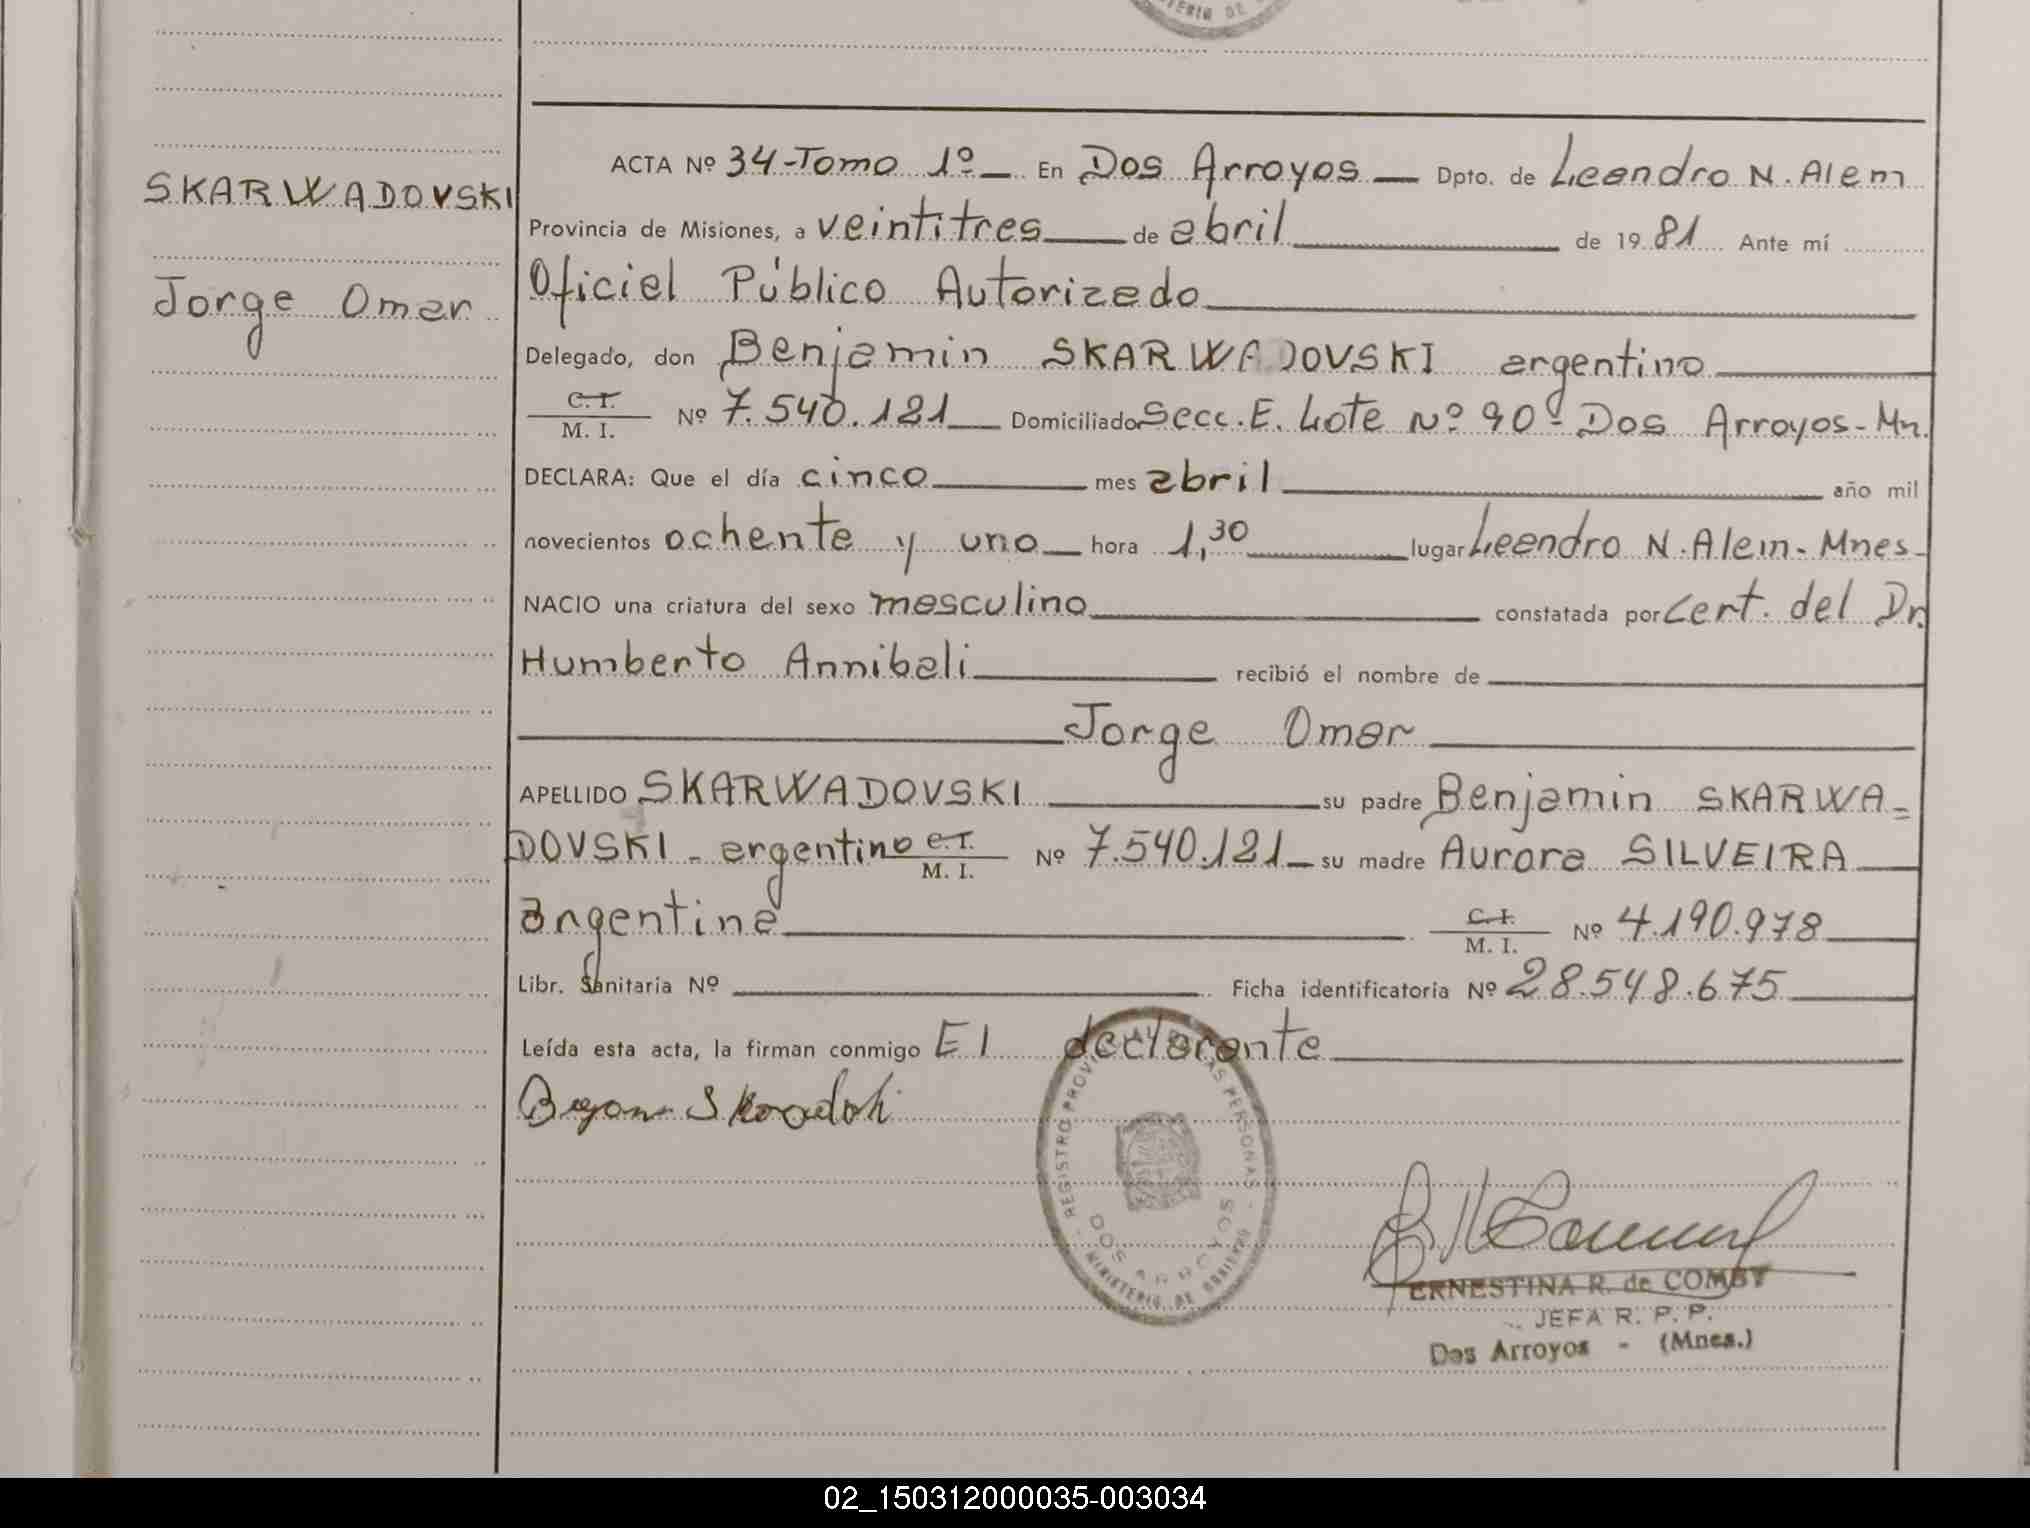 MINISTERIO DE
ACTA Nº 34-Tomo 1º En Dos Arroyos Dpto. de Leandro N. Alem
SKARWADOVSKI
Provincia de Misiones, a veintitres de abril de 1981 Ante mí
Jorge Omar
Oficial Público Autorizado
Delegado, don Benjamin SKARWADOVSKI argentino
C.I. / M. I. Nº 7.540.121 Domiciliado Secc. E. Lote Nº 90 - Dos Arroyos - Mn.
DECLARA: Que el día cinco mes abril año mil
novecientos ochenta y uno hora 1,30 lugar Leandro N. Alem - Mnes -
NACIO una criatura del sexo masculino constatada por Cert. del Dr.
Humberto Annibali recibió el nombre de
Jorge Omar
APELLIDO SKARWADOVSKI su padre Benjamin SKARWA=
DOVSKI - argentino C.I. / M. I. Nº 7.540.121 su madre Aurora SILVEIRA
argentina C.I. / M. I. Nº 4.190.978
Libr. Sanitaria Nº Ficha identificatoria Nº 28.548.675
Leída esta acta, la firman conmigo El declarante
REGISTRO PERSONAS
DOS ARROYOS
MINISTERIO DE GOBIERNO
ERNESTINA R. de COMBY
JEFA R. P. P.
Dos Arroyos - (Mnes.)
02_150312000035-003034